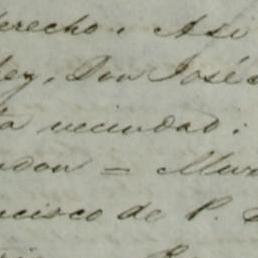 derecho. Asi
ley, Don José
ta vecindad:
ndon = Mur
ncisco de P.